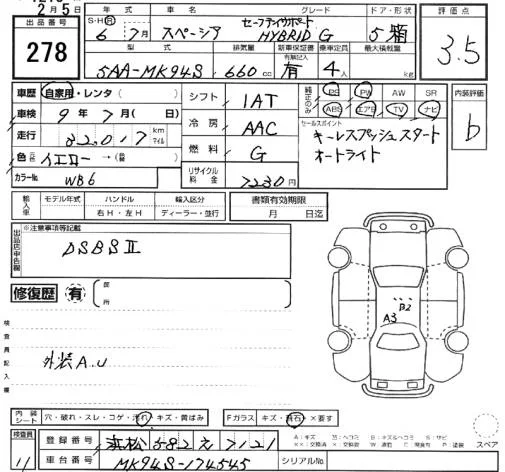 2月5日
出品番号
278
年式 車名 グレード ドア・形状
S・H・R 6年 7月 スペーシア セーフティサポート HYBRID G 5 箱
型式 排気量 新車保証書 乗車定員 最大積載量
有無記入
5AA-MK94S 660 cc 有 4人 kg
評価点
3.5
車歴 自家用・レンタ( )
車検 9年 7月( 日)
走行 32017 km マイル
色 元色 イエロー →(色替 )
カラーNo. WB6
シフト 1AT
冷房 AAC
燃料 G
リサイクル料金 7230円
純正のみ PS PW AW SR
ABS エアB TV ナビ
セールスポイント
キーレスプッシュスタート
オートライト
内装評価
b
輸入車 モデル年式 ハンドル 輸入区分
右H・左H ディーラー・並行
書類有効期限
月 日迄
出品店申告欄
※注意事項等記載
DSBSⅡ
修復歴 有
箇所
検査員記入欄
外装A.U
B2
A3
内装シート 穴・破れ・スレ・コゲ・汚れ・キズ・黄ばみ
Fガラス キズ・飛石・×要す
検査員
11
登録番号 浜松 582 え 7121
車台番号 MK94S-174545
シリアルNo.
A:キズ B:キズ&ヘコミ S:サビ
XX:交換済 X:交換要 W:波跡 C:腐食有 P:塗装
スペア